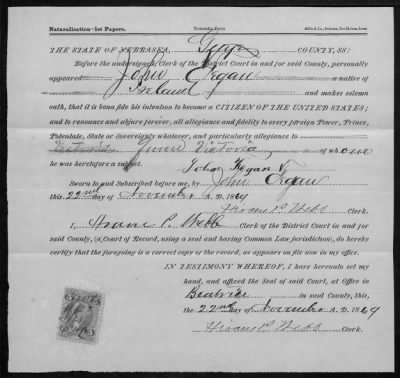 Naturalization—1st Papers.
THE STATE OF NEBRASKA, Gage COUNTY, SS:
Before the undersigned, Clerk of the District Court in and for said County, personally
appeared John Organ a native of
Ireland and makes solemn
oath, that it is bona fide his intention to become a CITIZEN OF THE UNITED STATES;
and to renounce and abjure forever, all allegiance and fidelity to every foreign Power, Prince,
Potentate, State or Sovereignty whatever, and particularly allegiance to
Victoria Queen Victoria of whom
he was heretofore a subject.
John Organ
Sworn to and Subscribed before me, by John Organ
this 22nd day of November A. D. 1869
Hiram P. Webb Clerk.
I, Hiram P. Webb Clerk of the District Court in and for
said County, (a Court of Record, using a seal and having Common Law jurisdiction), do hereby
certify that the foregoing is a correct copy of the record, as appears on file now in my office.
IN TESTIMONY WHEREOF, I have hereunto set my
hand, and affixed the Seal of said Court, at Office in
Beatrice in said County, this,
the 22nd day of November A. D. 1869
Hiram P. Webb Clerk.